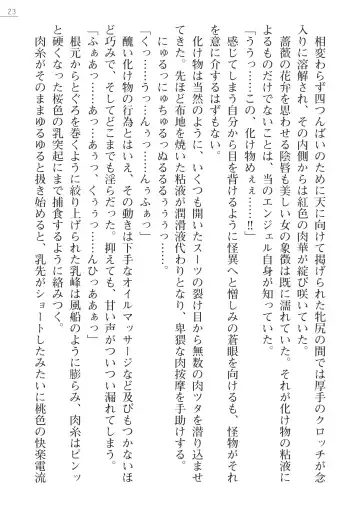 23
相変わらず四つんばいのために天に向けて掲げられた牝尻の間では厚手のクロッチが念
入りに溶解され、その内側からは紅色の肉華が綻び咲いていた。
薔薇の花弁を思わせる陰唇も美しい女の象徴は既に濡れていた。それが化け物の粘液に
よるものだけでないことは、当のエンジェル自身が知っていた。
「ううっ……この、化け物めぇぇ……!!」
感じてしまう自分から目を背けるように怪異へと憎しみの蒼眼を向けるも、怪物がそれ
を意に介するはずもない。
化け物は当然のように、いくつも開いたスーツの裂け目から無数の肉ツタを潜り込ませ
てきた。先ほど布地を焼いた粘液が潤滑液代わりとなり、卑猥な肉按摩を手助けする。
にゅるっにゅちゅるっぬるるるぅぅぅっ……。
「くっ……うっ……んぅっ……ふぁっ」
醜い化け物の行為とはいえ、その動きは下手なオイルマッサージなど及びもつかないほ
ど巧みで、そしてどこまでも淫らだった。抑えても、甘い声がついつい漏れてしまう。
「ふぁあっ……あっ……あぁっ、くぅぅっ……んひっああぁっ」
根元からとぐろを巻くように絞り上げられた乳峰は風船のように膨らみ、肉糸はピンッ
と硬くなった桜色の乳突起にまで捕食するように絡みつく。
肉糸がそのままゆるゆると扱き始めると、乳先がショートしたみたいに桃色の快楽電流